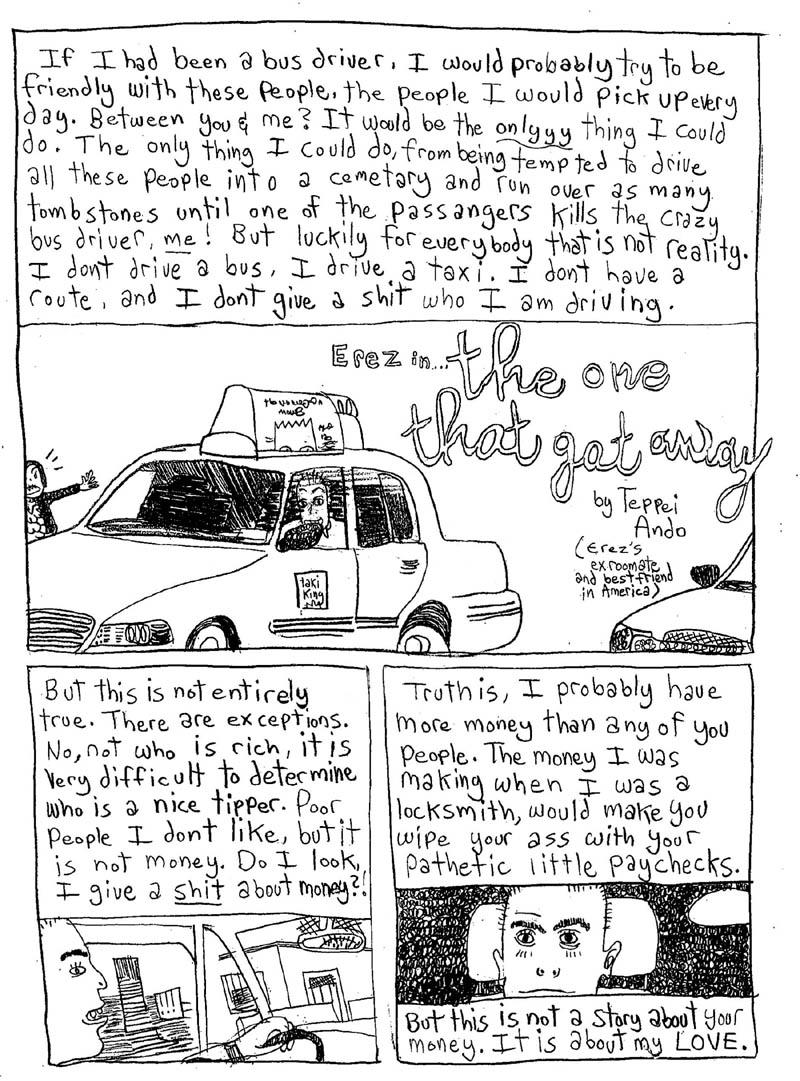 If I had been a bus driver, I would probably try to be
friendly with these people, the people I would pick up every
day. Between you & me? It would be the onlyyy thing I could
do. The only thing I could do, from being tempted to drive
all these people into a cemetary and run over as many
tombstones until one of the passangers kills the crazy
bus driver, me! But luckily for everybody that is not reality.
I dont drive a bus, I drive a taxi. I dont have a
route, and I dont give a shit who I am driving.
Erez in... the one
that gat away
by Teppei
Ando
(Erez's
exroomate
and best friend
in America)
taxi
King
But this is not entirely
true. There are exceptions.
No, not who is rich, it is
very difficult to determine
who is a nice tipper. Poor
people I dont like, but it
is not money. Do I look,
I give a shit about money?!
Truth is, I probably have
more money than any of you
people. The money I was
making when I was a
locksmith, would make you
wipe your ass with your
pathetic little paychecks.
But this is not a story about your
money. It is about my LOVE.